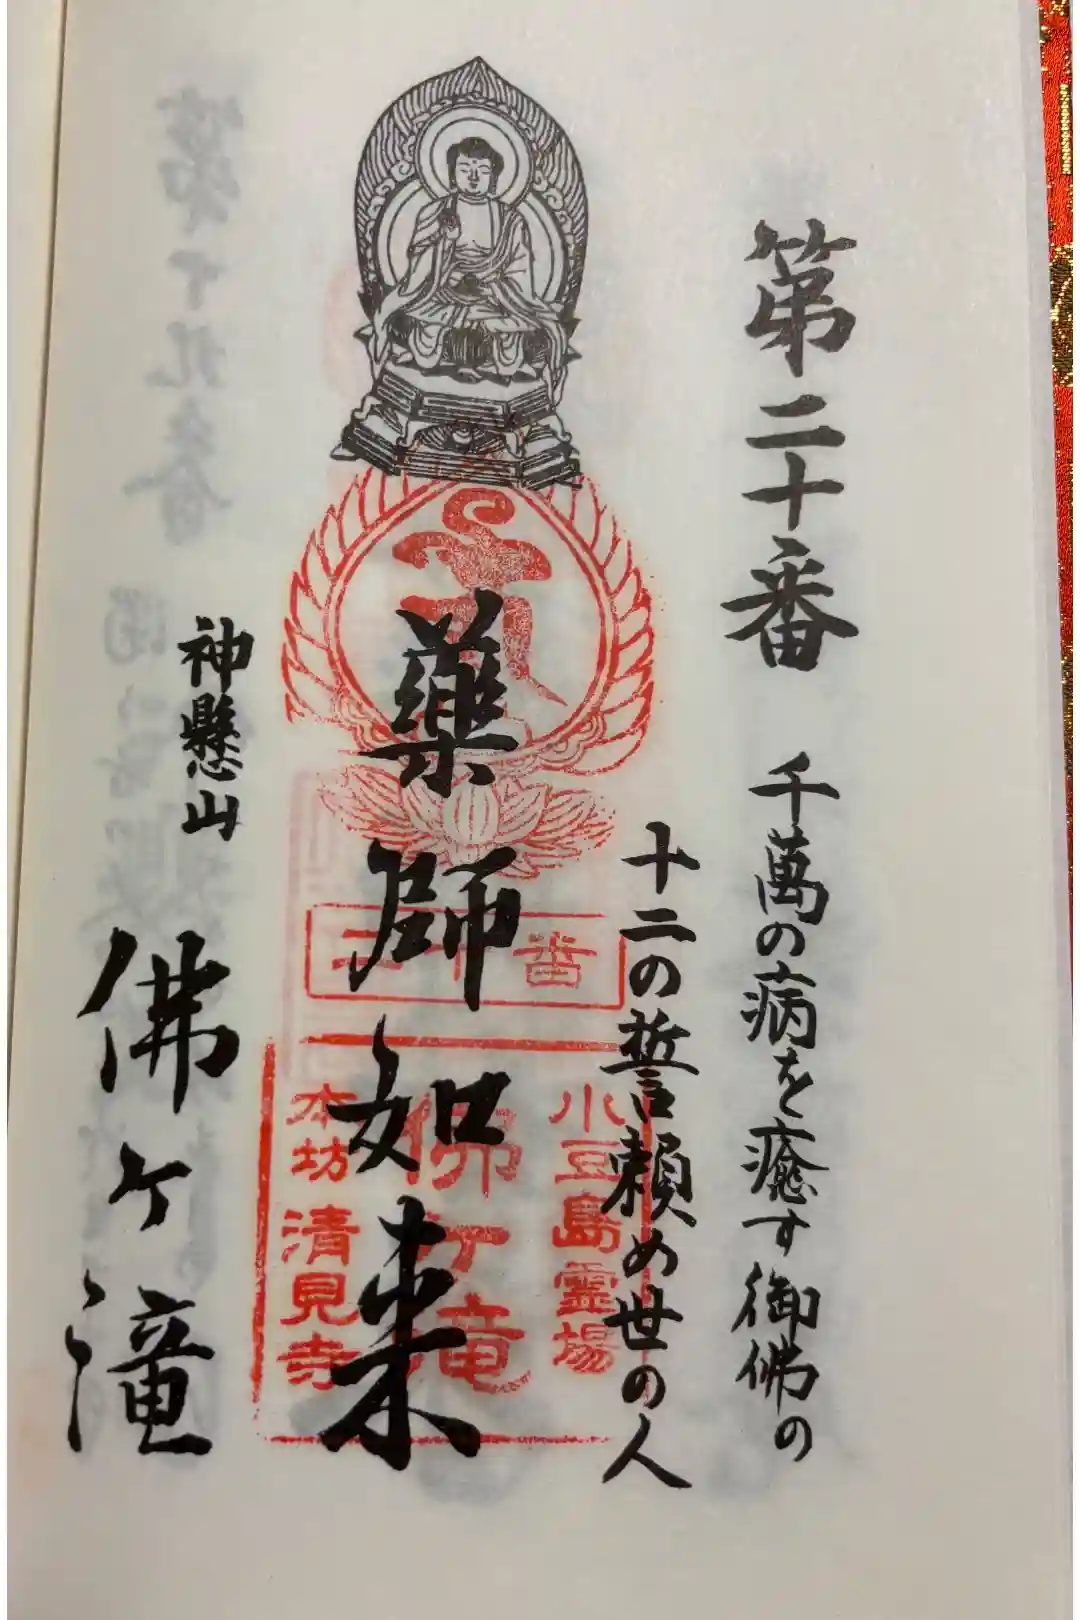 第二十番
千萬の病を癒す御佛の
十二の誓頼め世の人
薬師如来
神懸山
佛ヶ滝
二十番
小豆島霊場
佛ヶ滝
本坊 清見寺